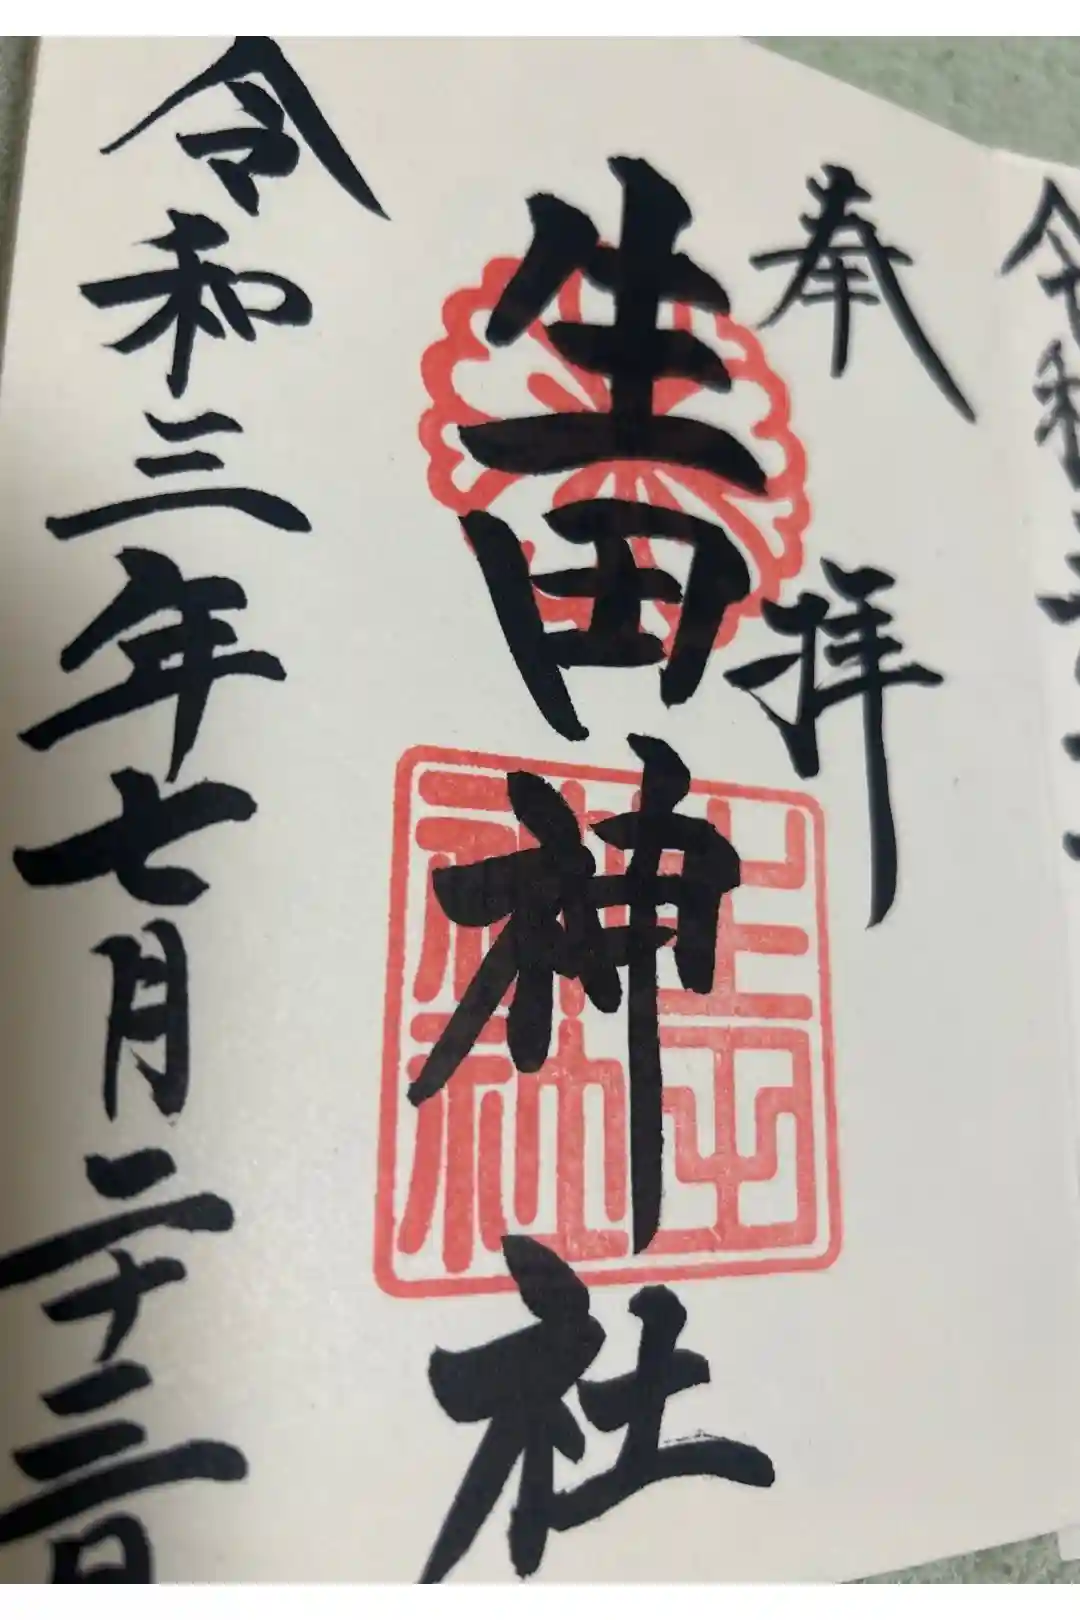 奉拝
生田神社
生田
神社
令和三年七月二十三日